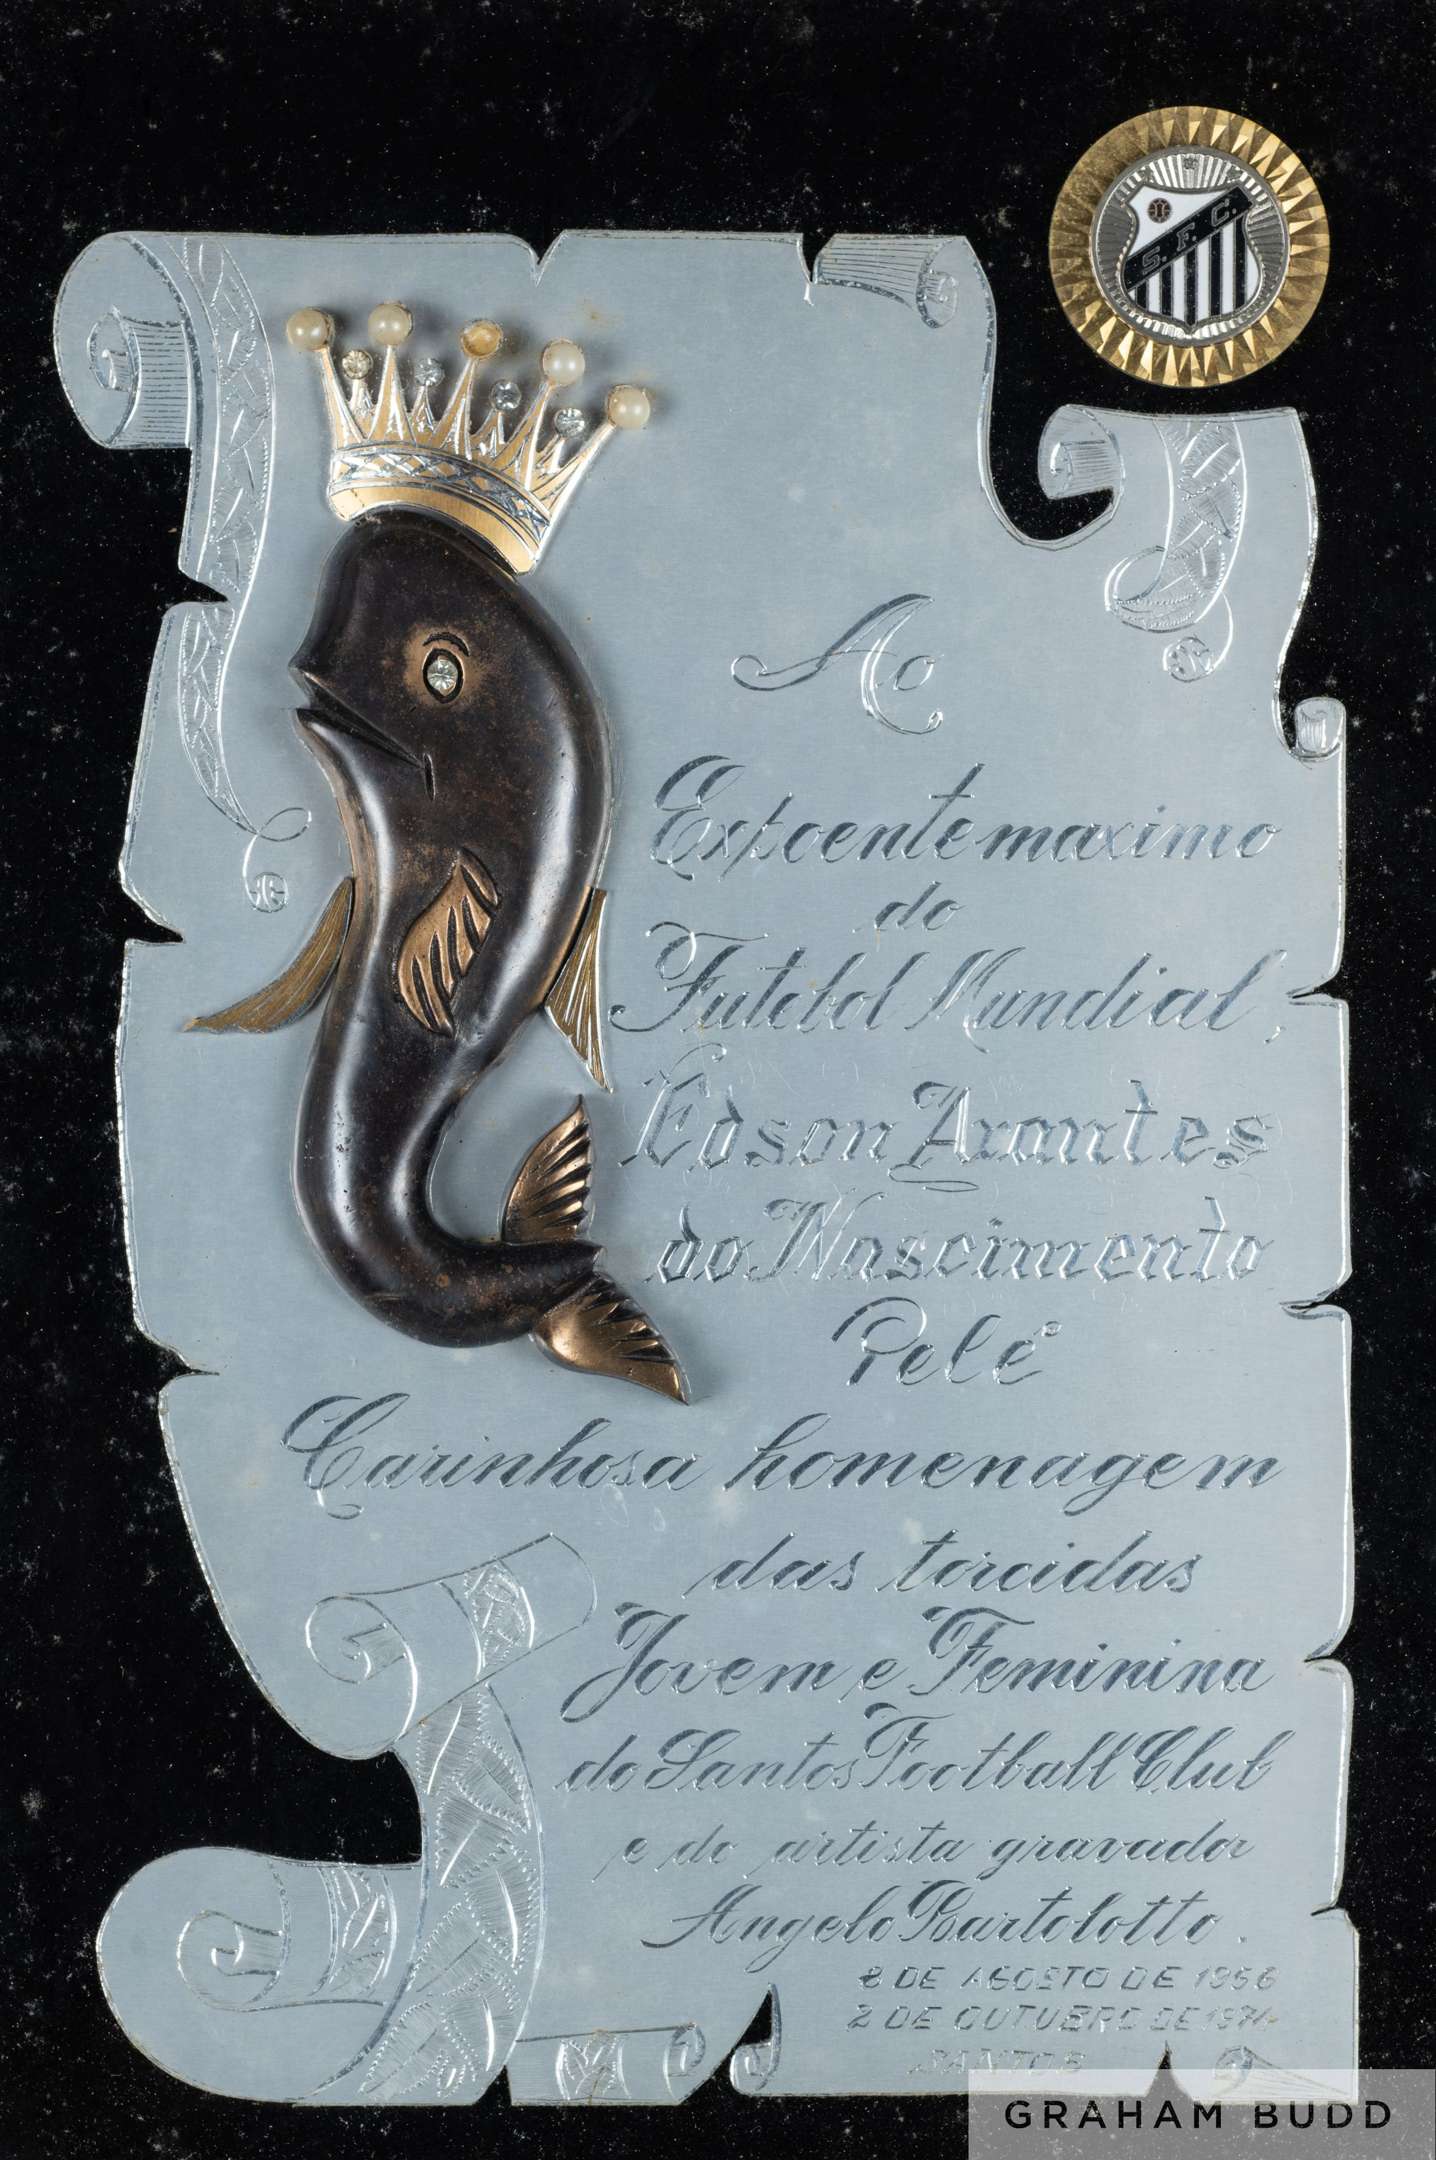 S. F. C.
Ao
Expoente maximo
do
Futebol Mundial,
Edson Arantes
do Nascimento
Pelé
Carinhosa homenagem
das torcidas
Jovem e Feminina
do Santos Football Club
e do artista gravador
Angelo Bartolotto.
8 DE AGOSTO DE 1956
2 DE OUTUBRO DE 1974
SANTOS
GRAHAM BUDD